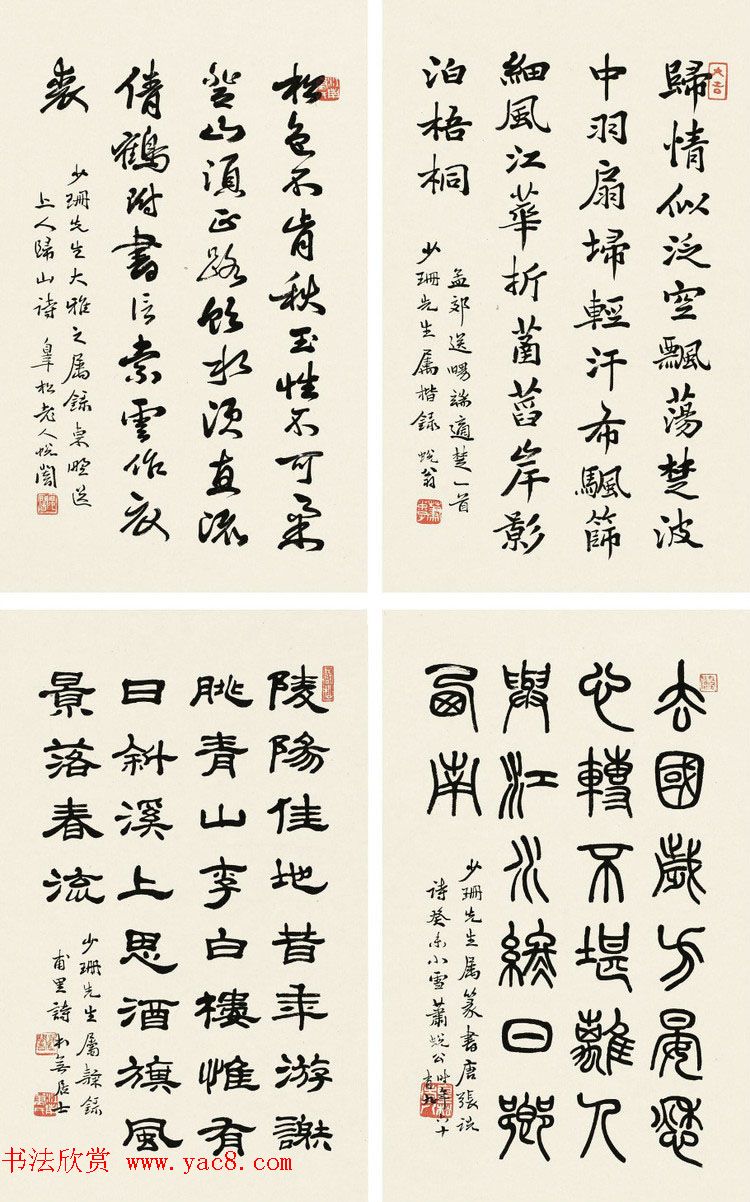 歸情似泛空飄蕩楚波
中羽扇掃輕汗布颿篩
細風江華折菡萏岸影
泊梧桐
孟郊送暢端適楚一首
少珊先生属楷錄 蛻翁
松色不肯秋玉性不可柔
登山須正路飲水須直流
倩鶴附書信索雲作衣
裘
少珊先生大雅之属錄東野送
上人歸山詩 皐松老人蛻闇
去國歲方晏愁
心轉不堪離人
與江水終日鄉
西南
少珊先生属篆書唐張説
詩癸未小雪蕭蛻公時年六十
有八
陵陽佳地昔年游謝
朓青山李白樓惟有
日斜溪上思酒旗風
景落春流
少珊先生屬隸錄
甫里詩 本無居士
书法欣赏 www.yac8.com